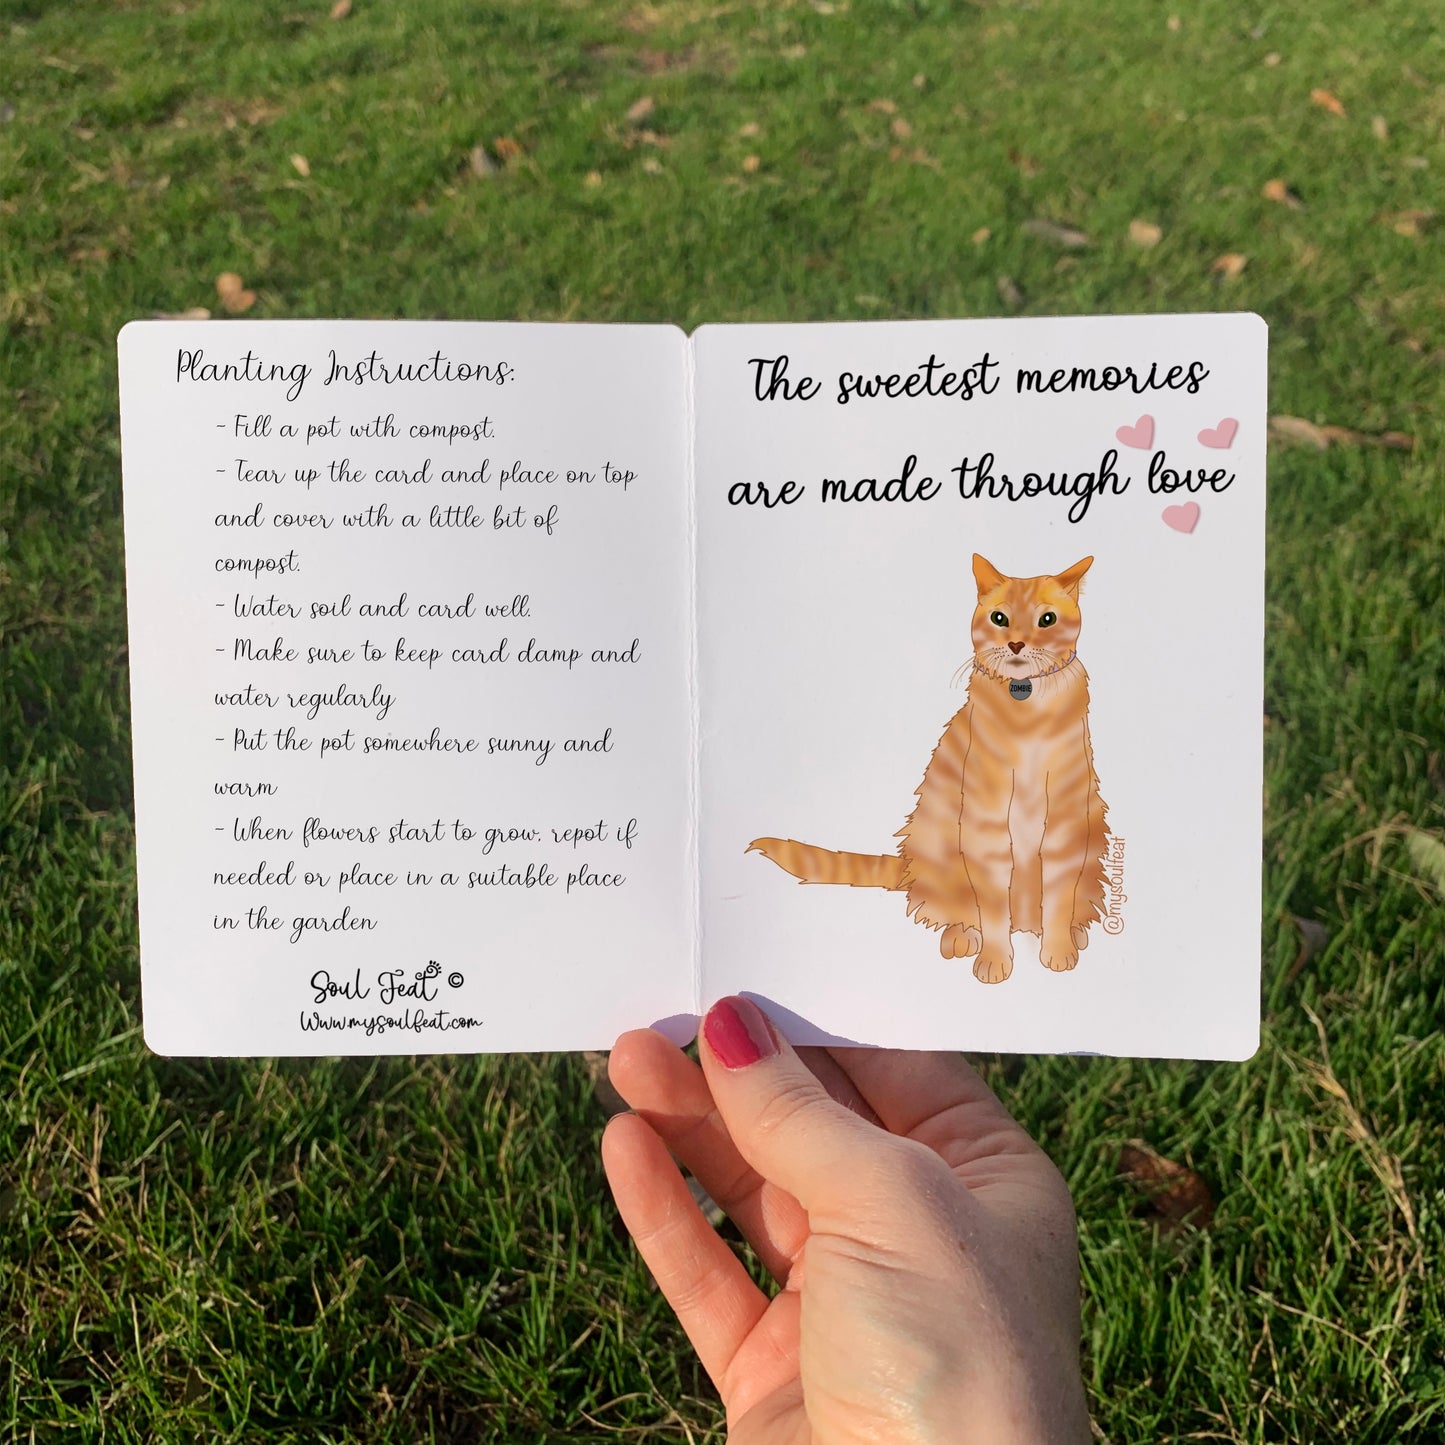 Planting Instructions:
- Fill a pot with compost.
- Tear up the card and place on top
and cover with a little bit of
compost.
- Water soil and card well.
- Make sure to keep card damp and
water regularly
- Put the pot somewhere sunny and
warm
- When flowers start to grow, repot if
needed or place in a suitable place
in the garden
Soul Feat ©
Www.mysoulfeat.com
The sweetest memories
are made through love
ZOMBIE
@mysoulfeat